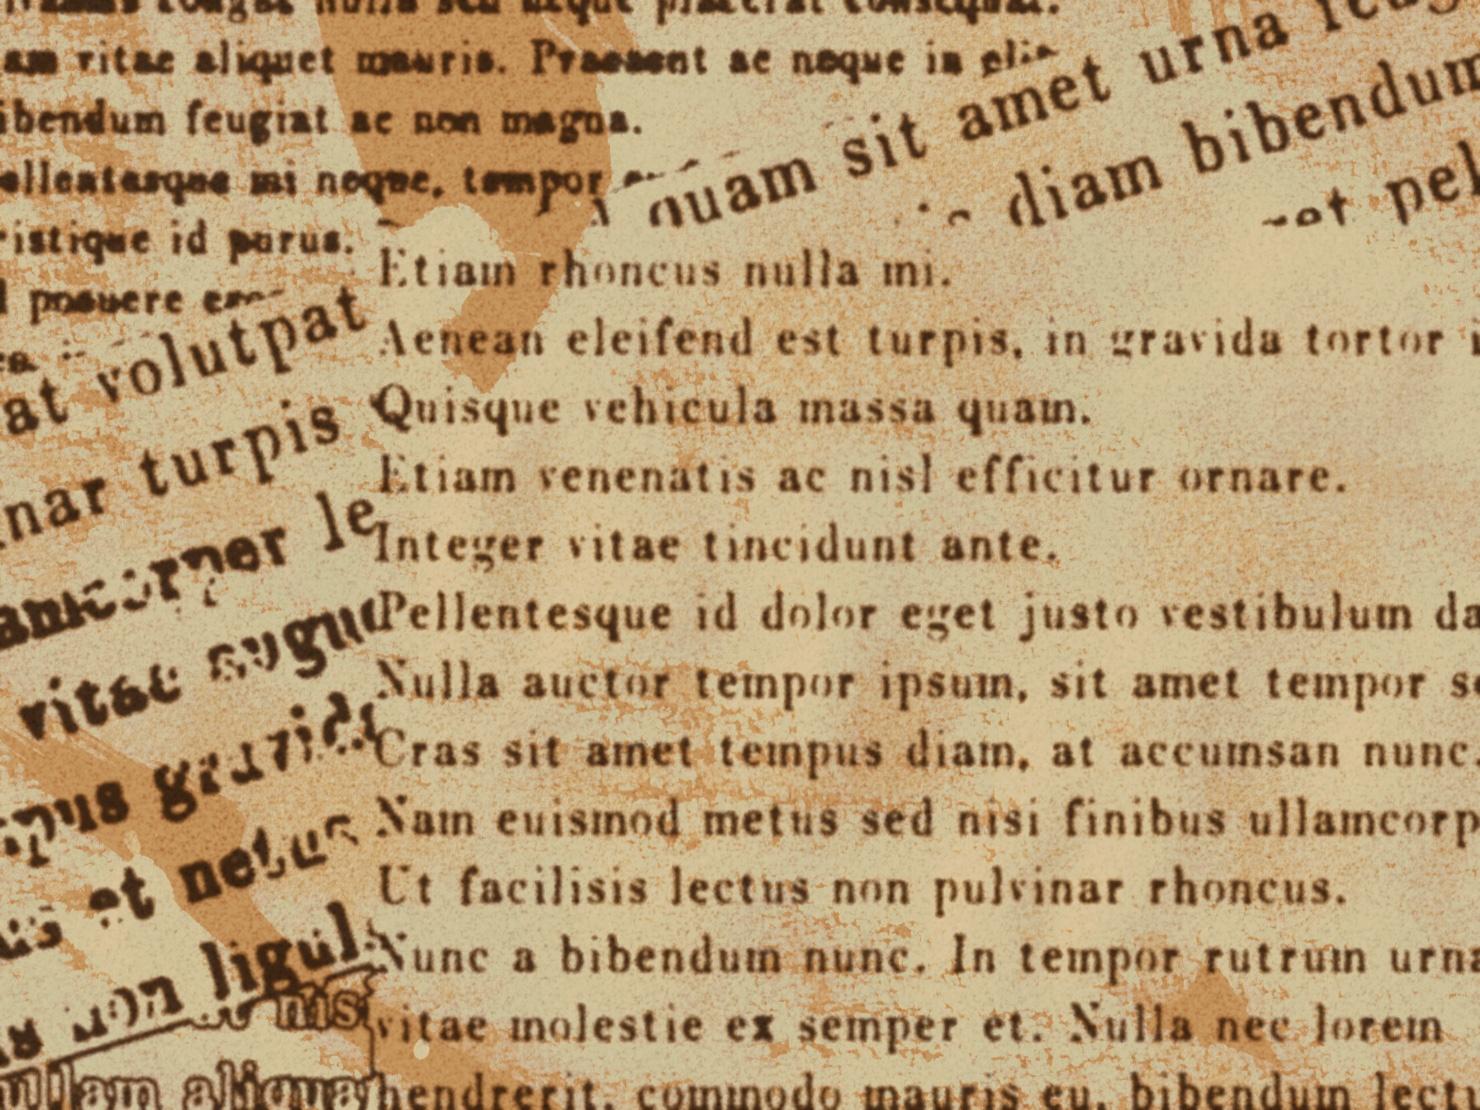 congue nulla sed neque placerat consequat.
am vitae aliquet mauris. Praesent ac neque in
ibendum feugiat ac non magna.
ellentesque mi neque, tempor
ristique id purus.
posuere
quam sit amet urna
diam bibendum
at volutpat
nar turpis
le
vitae augue
gravida
et netus
non ligula
nisl
ullam aliquam
Etiam rhoncus nulla mi.
Aenean eleifend est turpis, in gravida tortor
Quisque vehicula massa quam.
Etiam venenatis ac nisl efficitur ornare.
Integer vitae tincidunt ante.
Pellentesque id dolor eget justo vestibulum da
Nulla auctor tempor ipsum, sit amet tempor se
Cras sit amet tempus diam, at accumsan nunc.
Nam euismod metus sed nisi finibus ullamcorp
Ut facilisis lectus non pulvinar rhoncus.
Nunc a bibendum nunc. In tempor rutrum urna
vitae molestie ex semper et. Nulla nec lorem
hendrerit, commodo mauris eu, bibendum lectu